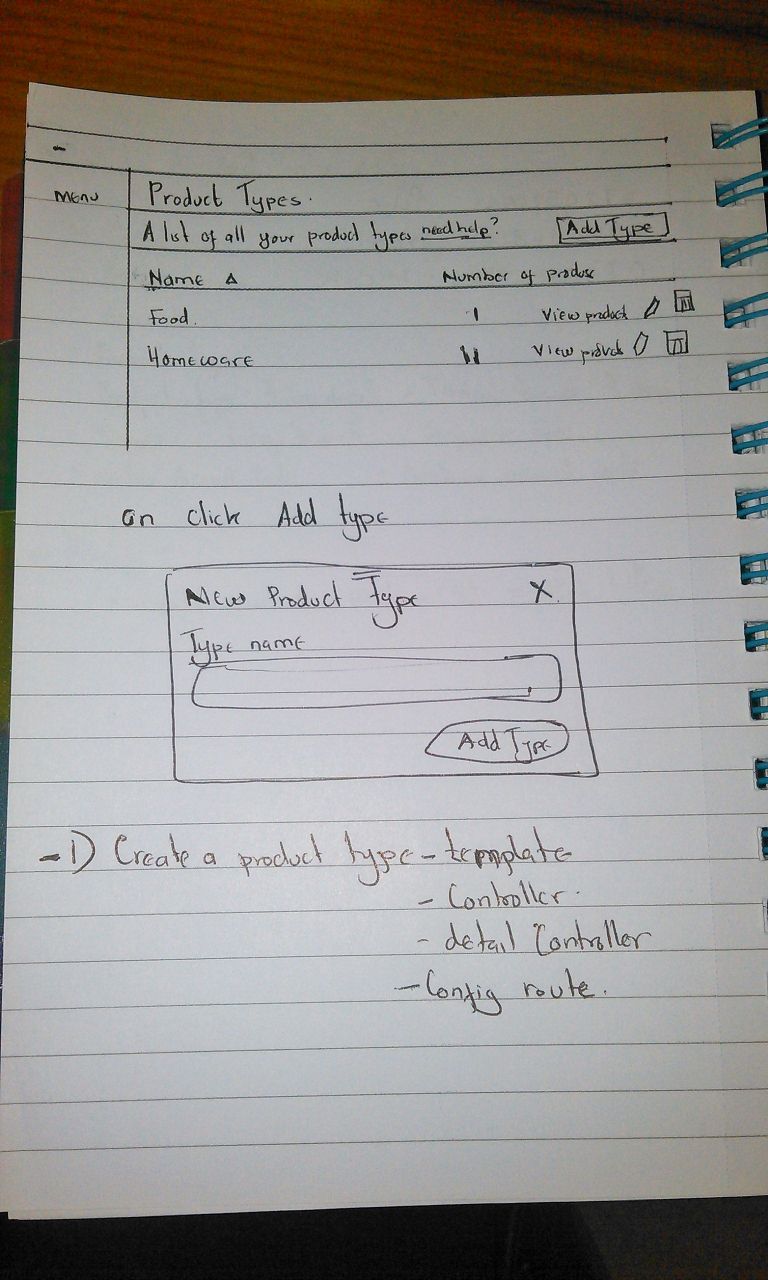 Menu
Product Types.
A list of all your product types need help? Add Type
Name Number of produsc
Food. 1 View product
Homeware 11 View produts
on click Add type
New Product Type X
Type name
Add Type
-1) Create a product type - template
- Controller.
- detail Controller
- Config route.